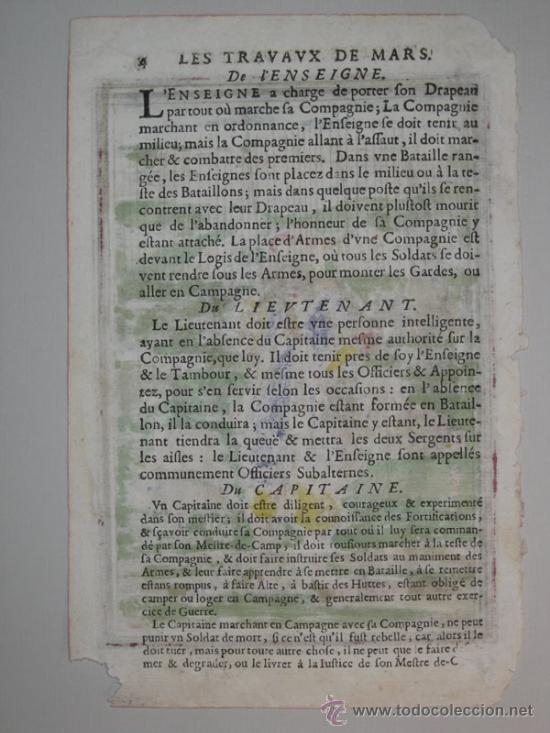 4 LES TRAVAVX DE MARS.
De l'ENSEIGNE.
L'ENSEIGNE a charge de porter son Drapeau
par tout où marche sa Compagnie; La Compagnie
marchant en ordonnance, l'Enseigne se doit tenir au
milieu; mais la Compagnie allant à l'assaut, il doit mar-
cher & combatre des premiers. Dans vne Bataille ran-
gée, les Enseignes sont placez dans le milieu ou à la te-
ste des Bataillons; mais dans quelque poste qu'ils se ren-
contrent avec leur Drapeau, il doivent plustost mourir
que de l'abandonner; l'honneur de sa Compagnie y
estant attaché. La place d'Armes d'vne Compagnie est
devant le Logis de l'Enseigne, où tous les Soldats se doi-
vent rendre sous les Armes, pour monter les Gardes, ou
aller en Campagne.
Du LIEVTENANT.
Le Lieutenant doit estre vne personne intelligente,
ayant en l'absence du Capitaine mesme authorité sur la
Compagnie, que luy. Il doit tenir pres de soy l'Enseigne
& le Tambour, & mesme tous les Officiers & Appoin-
tez, pour s'en servir selon les occasions: en l'absence
du Capitaine, la Compagnie estant formée en Batail-
lon, il la conduira; mais le Capitaine y estant, le Lieute-
nant tiendra la queuë & mettra les deux Sergents sur
les aisles: le Lieutenant & l'Enseigne sont appellés
communement Officiers Subalternes.
Du CAPITAINE.
Vn Capitaine doit estre diligent, courageux & experimenté
dans son mestier; il doit avoir la connoissance des Fortifications,
& sçavoir conduire sa Compagnie par tout où il luy sera comman-
dé par son Mestre-de-Camp; il doit tousiours marcher à la teste de
sa Compagnie, & doit faire instruire ses Soldats au maniment des
Armes, & leur faire apprendre à se mettre en Bataille, à se remettre
estans rompus, à faire Alte, à bastir des Huttes, estant obligé de
camper ou loger en Campagne, & generalement tout autre exer-
cice de Guerre.
Le Capitaine marchant en Campagne avec sa Compagnie, ne peut
punir vn Soldat de mort, si ce n'est qu'il fust rebelle, car alors il le
doit tuer, mais pour toute autre chose, il ne peut que le faire d
mer & degrader, ou le livrer à la Iustice de son Mestre de-C
www.todocoleccion.net